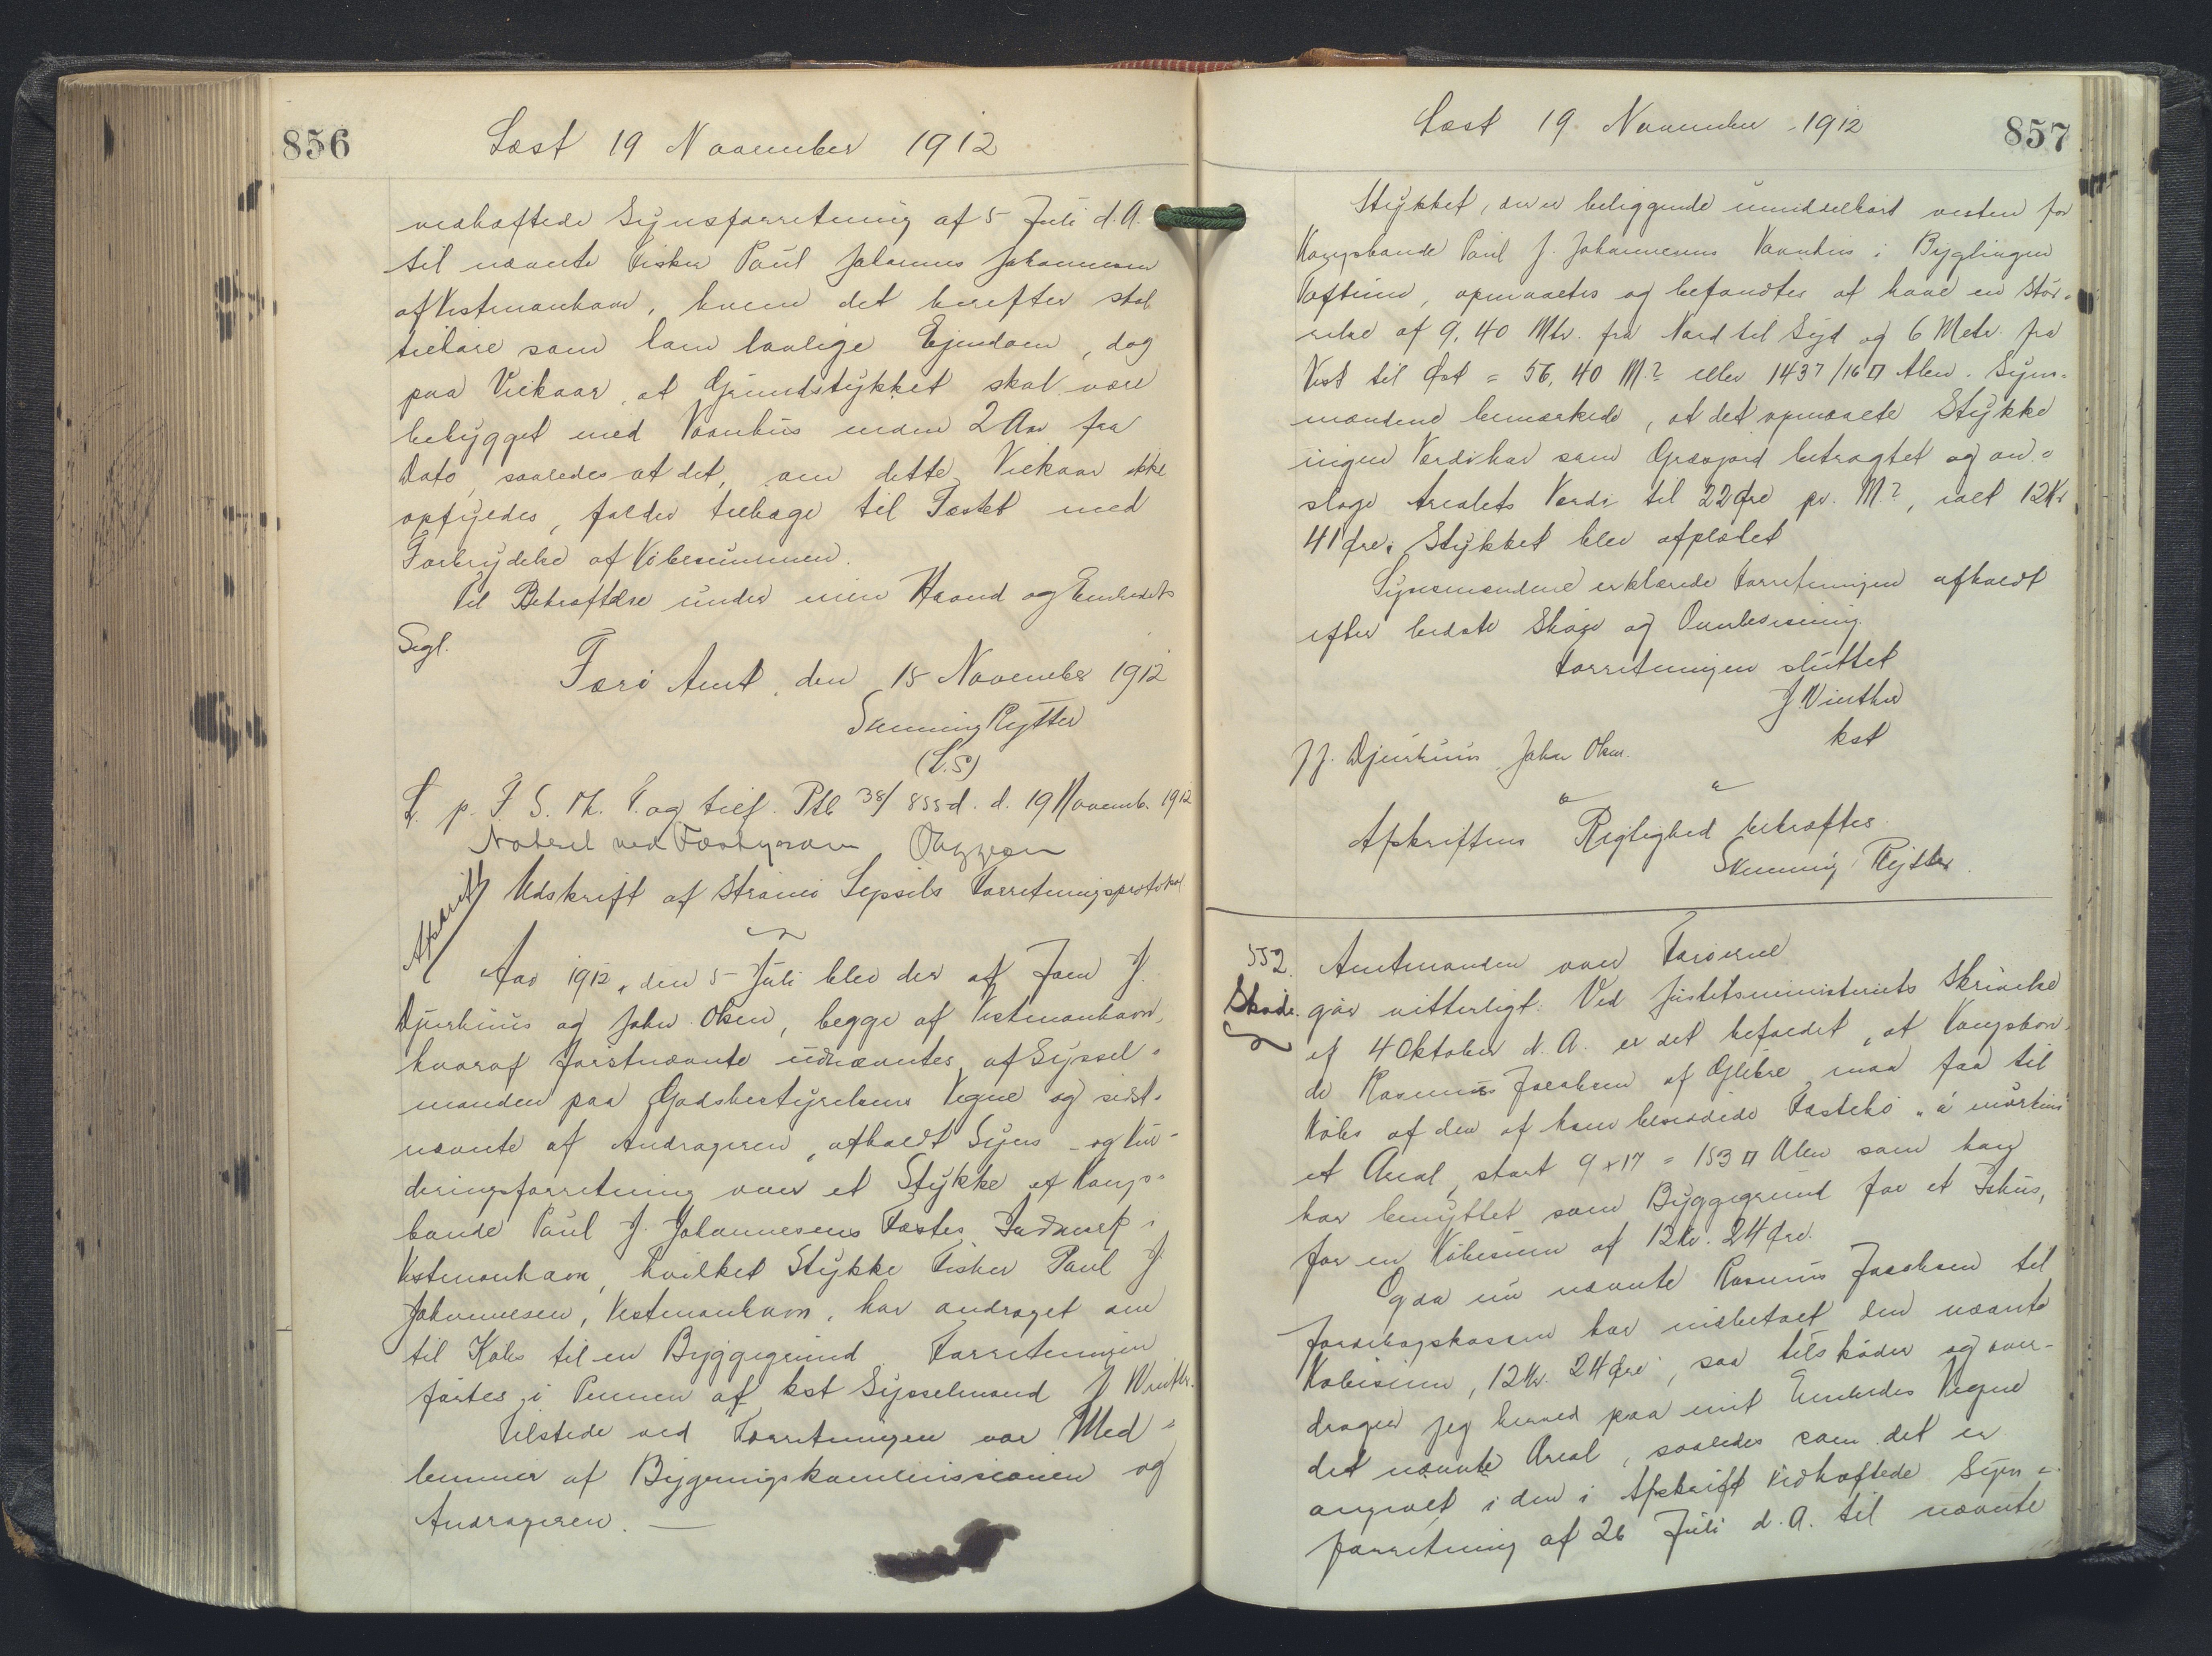 856
Læst 19 November 1912
vedhæftede Synsforretning af 5 Juli d.A.
til nævnte Fisker Paul Johannes Johannesen
af Vestmanhavn, hvem det herefter skal
tilhøre som hans lovlige Ejendom, dog
paa Vilkaar, at Grundstykket skal være
bebygget med Vaanhus inden 2 Aar fra
Dato, saaledes at det, om dette Vilkaar ikke
opfyldes, falder tilbage til Fæstet med
Forbrydelse af Købesummen.
Til Bekræftelse under min Haand og Embedets
Segl.
Færø Amt, den 15 November 1912
Svenning Rytter
(L.S)
L. p. F. S. Th. T. og tilf. Ptl 38/855 d. d. 19 Novemb. 1912
Noteret ved Fæstegodset
Afskrift
Udskrift af Strømø Syssels Forretningsprotokol
Aar 1912, den 5 Juli blev der af Joen J.
Djurhuus og Johs. Olsen, begge af Vestmanhavn,
hvoraf førstnævnte udnævntes af Syssel-
manden paa Godsbestyrelsens Vegne og sidst-
nævnte af Andrageren, afholdt Syns- og Vur-
deringsforretning over et Stykke af Kongs-
bonde Paul J. Johannesens Fæste Indmark i
Vestmanhavn, hvilket Stykke Fisker Paul J.
Johannesen, Vestmanhavn, har andraget om
til Købs til en Byggegrund. Forretningen
førtes i Pennen af kst Sysselmand J Winther.
Tilstede ved Forretningen var Med-
lemmer af Bygningskommissionen og
Andrageren. —
857
Læst 19. November 1912
Stykket, der er beliggende umiddelbart vesten for
Kongsbonde Paul J. Johannesens Vaanhus i Byglingen
Toftum, opmaaltes og befandtes at have en Stør-
relse af 9,40 Mtr. fra Nord til Syd og 6 Metr. fra
Vest til Øst = 56,40 M.² eller 143 7/16 □ Alen. Syns-
mændene bemærkede, at det opmaalte Stykke
ingen Værdi har som Græsjord betragtet og an-
slog Arealets Værdi til 22 Øre pr. M.², ialt 12 Kr
41 Øre. Stykket blev afpælet
Synsmændene erklærede Forretningen afholdt
efter bedste Skøn og Overbevisning.
Forretningen sluttet
J. Winther
kst
J J. Djurhuus Johs Olsen.
Afskriftens Rigtighed bekræftes.
Svenning Rytter.
552.
Skøde.
Amtmanden over Færøerne
gør vitterligt: Ved Justitsministeriets Skrivelse
af 4 Oktober d. A. er det bifaldet, at Kongsbon-
de Rasmus Jacobsen af Glibre maa faa til
Købs af den af ham besiddede Fæstebo „á mørkini"
et Areal, stort 9 x 17 = 153 □ Alen som han
har benyttet som Byggegrund for et Ishus,
for en Købesum af 12 Kr. 24 Øre.
Og da nu nævnte Rasmus Jacobsen til
Jordebogskassen har indbetalt den nævnte
Købesum, 12 Kr. 24 Øre, saa tilskøder og over-
drager jeg herved paa mit Embedes Vegne
det nævnte Areal, saaledes som det er
angivet i den i Afskrift vedhæftede Syns-
forretning af 26 Juli d. A. til nævnte